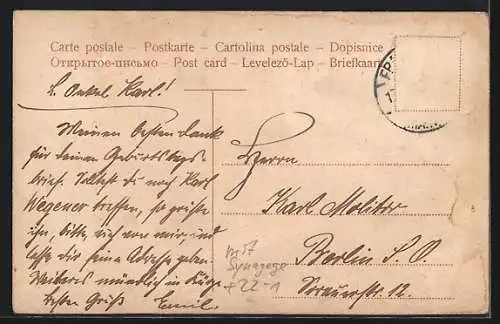 Carte postale – Postkarte – Cartolina postale – Dopisnice
Открытое письмо – Post card – Levelező-Lap – Briefkaart
L. Onkel Karl!
Meinen besten Dank
für deinen Geburtstags-
brief. Solltest du noch Karl
Wegener treffen, so grüße
ihn, bitte, auch von mir, und
lasse dir seine Adresse geben.
Weiteres mündlich in Kürze
Besten Gruß Emil.
Herrn
Karl Molitor
Berlin S. O.
12.
mit
Synagoge
+22-1